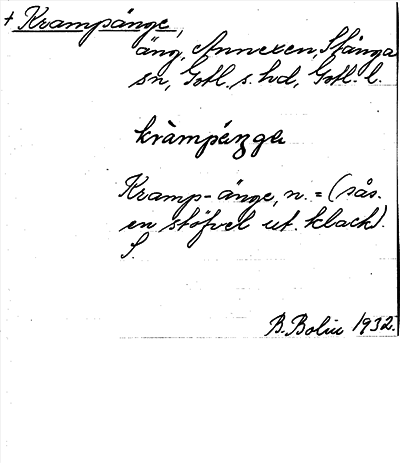 + Krampänge,
äng, Annexen, Stånga
sn, Gotl. s. hd, Gotl. l.
kràmpä́nga
Kramp-änge, n. = (sås.
en stöfvel ut. klack).
S.
B. Bolin 1932.